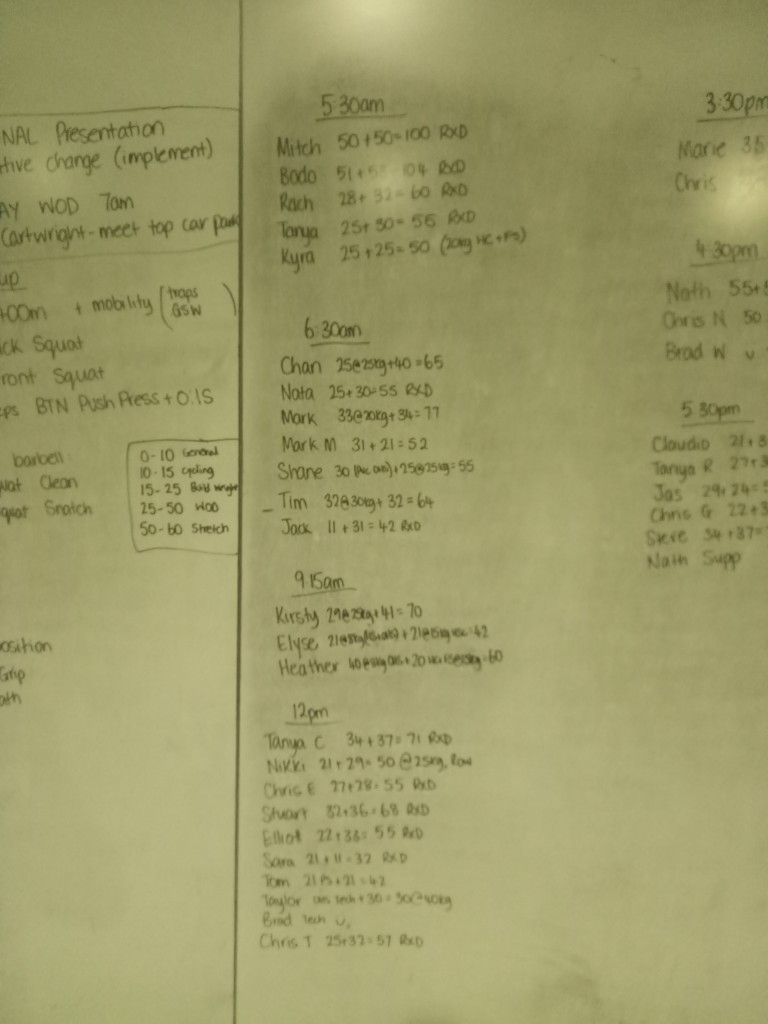 NAL Presentation
tive change (implement)
AY WOD 7am
Cartwright - meet top car park
up
400m + mobility (traps
GSW)
ck Squat
ront Squat
ps BTN Push Press + O.H.S
barbell
uat Clean
quat Snatch
0-10 General
10-15 Cycling
15-25 Build Weight
25-50 WOD
50-60 Stretch
osition
Grip
ath
5:30am
Mitch 50+50=100 RxD
Bodo 51+ 104 RxD
Rach 28+32=60 RxD
Tanya 25+30=55 RxD
Kyra 25+25=50 (20kg HC + FS)
6:30am
Chan 25@25kg+40=65
Nata 25+30=55 RXD
Mark 33@20kg+34=77
Mark M 31+21=52
Shane 30 +25@25kg=55
Tim 32@30kg+32=64
Jack 11+31=42 RxD
9:15am
Kirsty 29@25kg+41=70
Elyse 21@ + 21@15kg =42
Heather 40@ + 20 =60
12pm
Tanya C 34+37=71 RXD
Nikki 21+29=50 @25kg, Row
Chris E 27+28=55 RXD
Stuart 32+36=68 RXD
Elliot 22+33=55 RXD
Sara 21+11=32 RXD
Tom 21 PS+21=42
Taylor tech+30=30@40kg
Brad Tech
Chris T 25+32=57 RXD
3:30pm
Marie 35
Chris
4:30pm
Nath 55+5
Chris N 50
Brad W
5:30pm
Claudio 21+3
Tanya R 27+3
Jas 29+24=5
Chris G 22+3
Steve 34+37=
Nath Supp